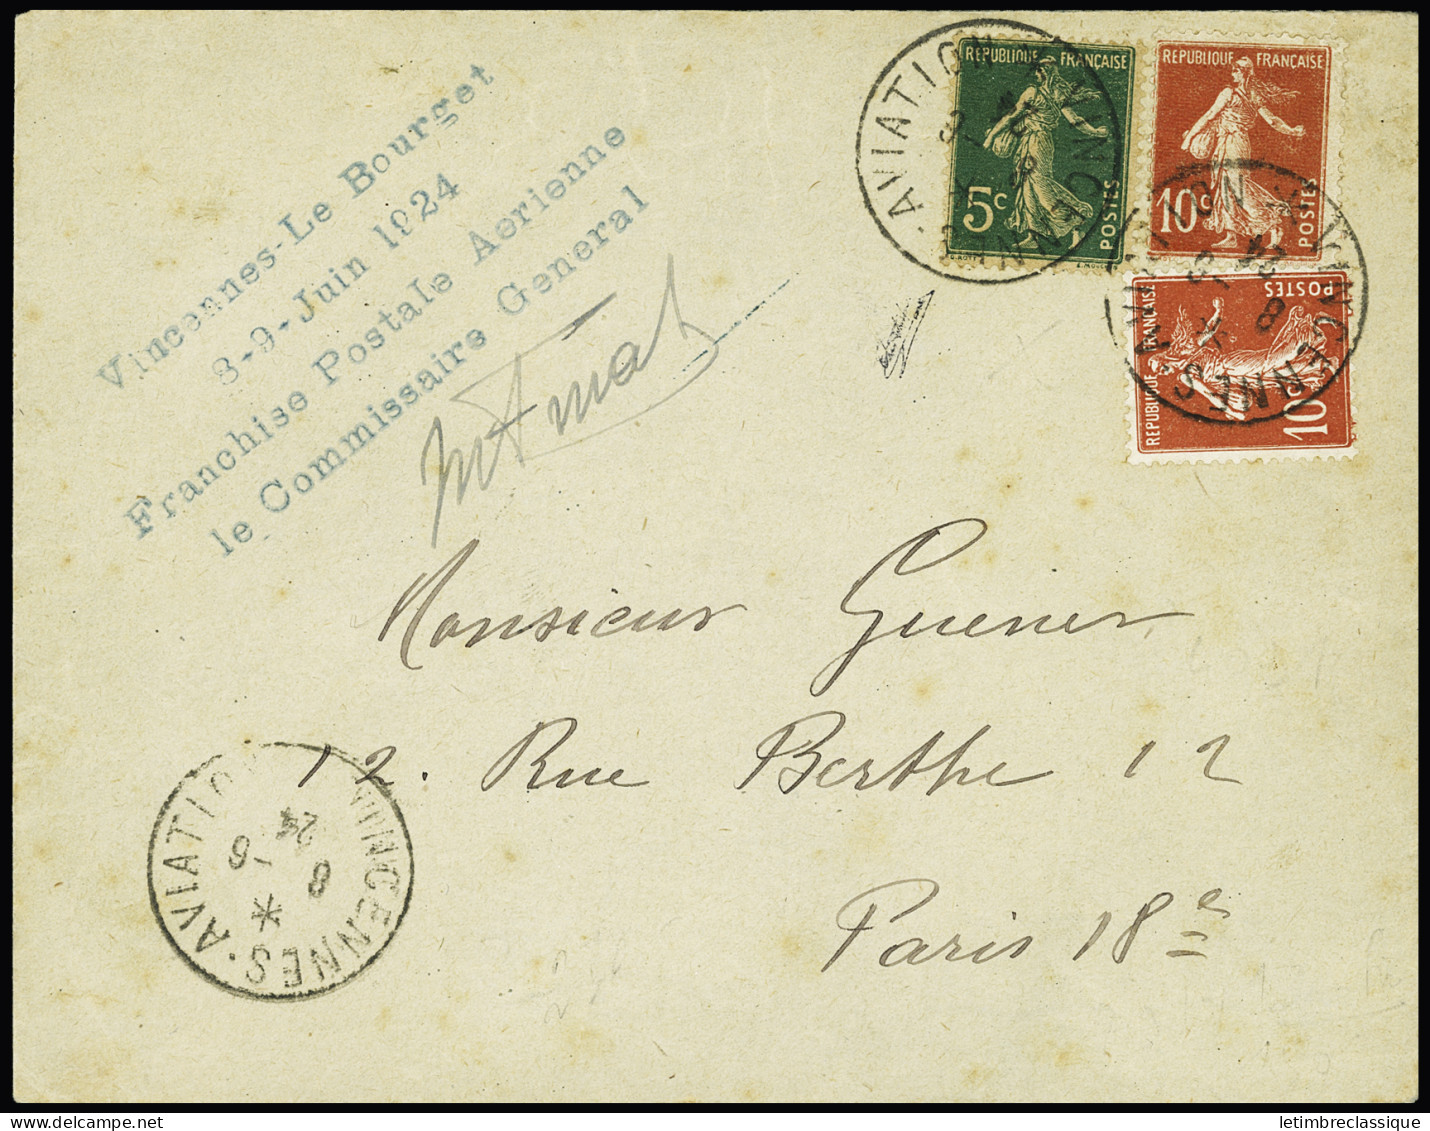 Vincennes-Le Bourget
8-9-Juin 1924
Franchise Postale Aerienne
le Commissaire General
REPUBLIQUE FRANÇAISE
5c
POSTES
REPUBLIQUE FRANÇAISE
10c
POSTES
REPUBLIQUE FRANÇAISE
10c
POSTES
AVIATION * VINCENNES.
8 -6
24
AVIATION * VINCENNES.
8 -6
24
Monsieur Guener
12. Rue Berthe 12
Paris 18e
AVIATION VINCENNES.
*
8 -6
24
delcampe.net
letimbreclassique